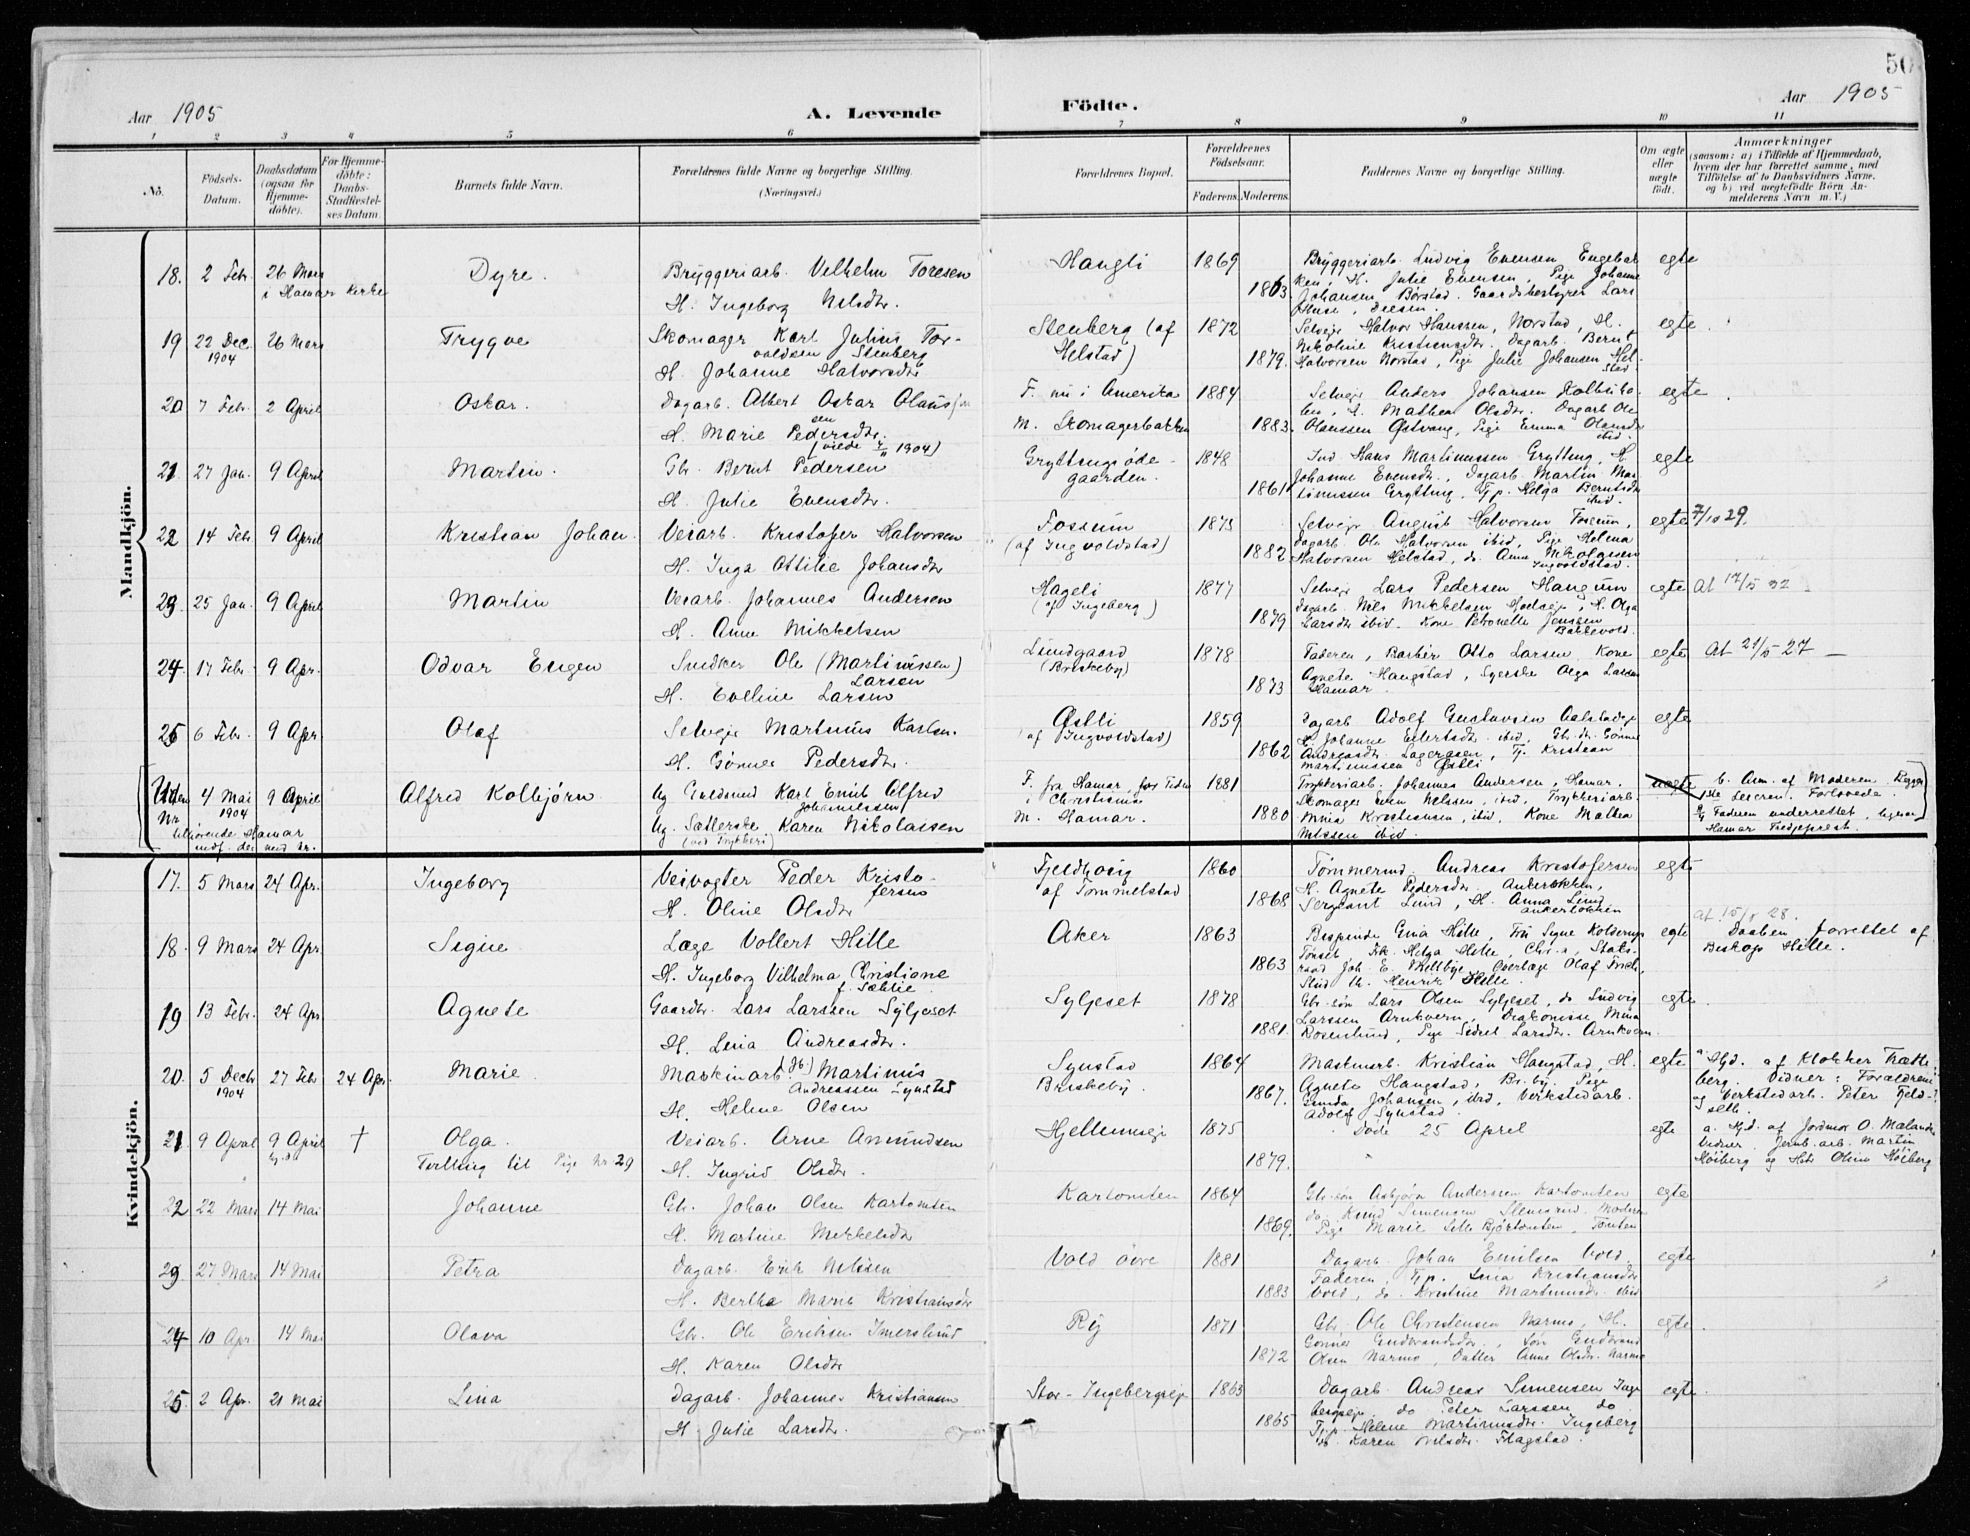 50
Aar 1905
A. Levende
Födte.
Aar 1905
1 2 3 4 5 6 7 8 9 10 11
No.
Födsels-Datum.
Daabsdatum (ogsaa for Hjemme-döbte).
For Hjemme-döbte: Daabs-Stadfæstel-ses Datum.
Barnets fulde Navn.
Forældrenes fulde Navne og borgerlige Stilling. (Næringsvei.)
Forældrenes Bopæl.
Forældrenes Födselsaar.
Faderens. Moderens.
Faddernes Navne og borgerlige Stilling.
Om ægte eller uægte födt.
Anmærkninger
(saasom: a) i Tilfælde af Hjemmedaab, hvem der har forrettet samme, med Tilföielse af to Daabsvidners Navne, og b) ved uegtefödte Börn An-melderens Navn m. V.)
Mandkjön.
18. 2 Febr. 26 Mars i Hamar Kirke Dyre. Bryggeriarb. Vilhelm Toresen
H. Ingeborg Nilsdtr.
Haugli 1869 1863
Bryggeriarb. Ludvig Evensen Engebak
ken, H. Julie Evensen, Pige Johanne
Johansen, Børstad. Gaardsbestyrer Lars
egte
19 22 Dec. 1904 26 Mars Trygve Skomager Karl Julius Tor-
valdsen Stenberg
H. Johanne Halvorsdtr
Stenberg (af Helstad) 1872 1879.
Selveier Halvor Hanssen, Norstad, H.
Nikoline Kristiansdtr. Dagarb. Bernt
Halvorsen Norstad, Pige Julie Johansen Hel-
stad
egte
20 7 Febr. 2 April Oskar. Dagarb. Albert Oskar Olaussen
H. Marie Pedersdtr.
F. nu i Amerika 1884
M. Skomagerbakken 1883.
Selveier Anders Johansen
H. Mathea Olsdtr. Dagarb Ole
Olaussen Østvang, Pige Emma Olausdtr
ibid.
egte
21. 27 Jan. 9 April Martin. Gbr. Bernt Pedersen
H. Julie Evensdtr.
Gryttingsøde-gaarden. 1848 1861
Ind. Hans Martinussen Grytting, H.
Johanne Evensdtr., Dagarb. Martin Mar
tinussen Grytting, Tjp. Helga Berntsdtr
ibid.
egte
22 14 Febr. 9 April Kristian Johan. Veiarb. Kristofer Halvorsen
H. Inga Ottilie Johansdtr
Fossum (af Ingvoldstad) 1873 1882
Selveier August Halvorsen Fossum,
Dagarb. Ole Halvorsen ibid, Pige Helma
Halvorsen Helstad, do. Anna Nikolaisen
Ingvoldstad.
egte 7/10 29.
23. 25 Jan. 9 April Martin Veiarb. Johannes Andersen
H. Anne Mikkelsen
Hageli (af Ingeberg) 1877 1879
Selveier Lars Pedersen Hangum
Dagarb. Nils Mikkelsen, H. Olga
Larsdtr ibid. Kone Petronelle Jenssen
Bakkevold.
egte At 17/5 32
24. 17 Febr. 9 Apr. Odvar Eugen Snidker Ole (Martinissen)
Larsen
H. Eveline Larsen
Lundgaard (Briskeby) 1878 1873
Faderen, Barbér Otto Larsen, Kone
Agnete Hangstad, Syerske Olga Larsen
Hamar.
egte At 21/5 27
25 6 Febr. 9 Apr. Olaf Selveier Martinus Karlsen.
H. Gønner Pedersdtr.
Østli (af Ingvoldstad) 1859 1862
Dagarb Adolf Gustavsen Aalstadeie
H. Johanne Eilertsdtr. ibid, Gbr.dtr. Gønner
Andreasdtr. Lageraasen, Tj. Kristian
Martinussen Østli
egte
Uden Nr. 4 Mai 1904 9 April Alfred Kolbjørn Ug. Guldsmed Karl Emil Alfred
Johannessen
Ug. Sætterske Karen Nikolaissen
(ved Trykkeri)
tilhørende Hamar
F. fra Hamar, for Tiden i Christiania 1881
M. Hamar. 1880
Trykkeriarb. Johannes Andersen, Hamar.
Skomager Nilssen, ibid, Trykkeriarb.
Mina Kristiansen, ibid, Kone Mathea
Nilssen ibid.
uægte
b. Anm. af Moderen.
1ste Leieren. Forlovede.
Faderen underrettet
Hamar Fredsprest.
Kvindekjön.
17. 5 Mars 24 Apr. Ingeborg Veivogter Peder Kristo-
fersen
H. Oline Olsdtr
Fjeldhøug af Tommelstad 1860 1868
Tømmermd. Andreas Kristofersen
H. Agnete Pedersdtr Ankerløkken,
Sergeant Lund, H. Anna Lund
Ankerløkken
egte
18. 9 Mars 24 Apr. Signe Læge Vollert Hille
H. Ingeborg Vilhelma Christiane
f. Sæhlie.
Aker 1863 1863
Bispinde Gina Hille, Fru Signe Kolderup
Tønset Frk. Helga Hille, Chr.a, Stats-
raad Joh. E. Mellbye, Overlæge Olaf Frich,
Stud. th. Henrik Hille.
egte
at 15/1 28.
Daaben forrettet af
Biskop Hille.
19 13 Febr. 24 Apr Agnete Gaardbr. Lars Larssen Syljeset
H. Lina Andreasdtr.
Syljeset 1878 1881.
Gbr.søn Lars Olsen Syljeset, do Ludvig
Larssen Arnkvern, Diakonisse Mina
Rosenlund, Pige Sidsel Larsdtr. Arnkvern.
egte.
20. 5 Decbr 1904 27 Febr 24 Apr. Marie Maskinarb. (Jb.) Martinus
Andreassen Synstad
H. Heline Olsen
Synstad Briskeby. 1864 1867.
Maskinarb. Kristian Haugstad, H.
Agnete Haugstad, Br.by, Pige
Gunda Johansen, ibid, Verkstedarb.
Adolf Synstad.
egte
a Hjd. af Klokker Trætte-
berg. Vidner: Forældrene
og Verkstedarb. Peter Fjeld-
seth.
21 9 April 9 April † Olga. Veiarb. Arne Amundsen
Tvilling til Pige Nr. 29
H. Ingrid Olsdtr.
Hjellumseie 1875 1879.
Døde 25 April
egte
a. Hjd. af Jordmor O. Mælande
Vidner Jernb.arb. Martin
Høiberg og Hstr Olina Høiberg
22 22 Mars 14 Mai Johanne Gbr. Johan Olsen Kartomten
H. Martine Mikkelsdtr
Kartomten 1864 1869.
Gbr.søn Asbjørn Anderssen Kartomten
do. Knud Simensen Stensrud. Moderen
Pige Marie Bjørtomten, Tomten
egte
23 27 Mars 14 Mai Petra Dagarb. Erik Nilssen
H. Berthe Marie Kristiansdtr
Vold øvre 1881 1883
Dagarb. Johan Emilsen Vold
Faderen, Tjp. Lina Kristiansdtr
Vold, do. Kristine Martinusdtr. ibid
egte
24 10 Apr. 14 Mai Olava Gbr. Ole Eriksen Imerslund
H. Karen Olsdtr
Rij 1871 1872
Gbr. Ole Christensen Narmo, H.
Gønner Gudbrandsdtr, Søn Gudbrand
Olsen Narmo, Datter Anne Olsdtr. Narmo
egte.
25 2 Apr. 21 Mai Lina Dagarb. Johannes Kristiansen
H. Julie Larsdtr.
Stor-Ingebergseie 1863 1865
Dagarb. Andreas Simensen Inge
bergseie, do Peter Larssen do
Tjp. Helene Martinusdtr. Ingeberg
H. Karen Nilsdtr. Flagstad.
egte.